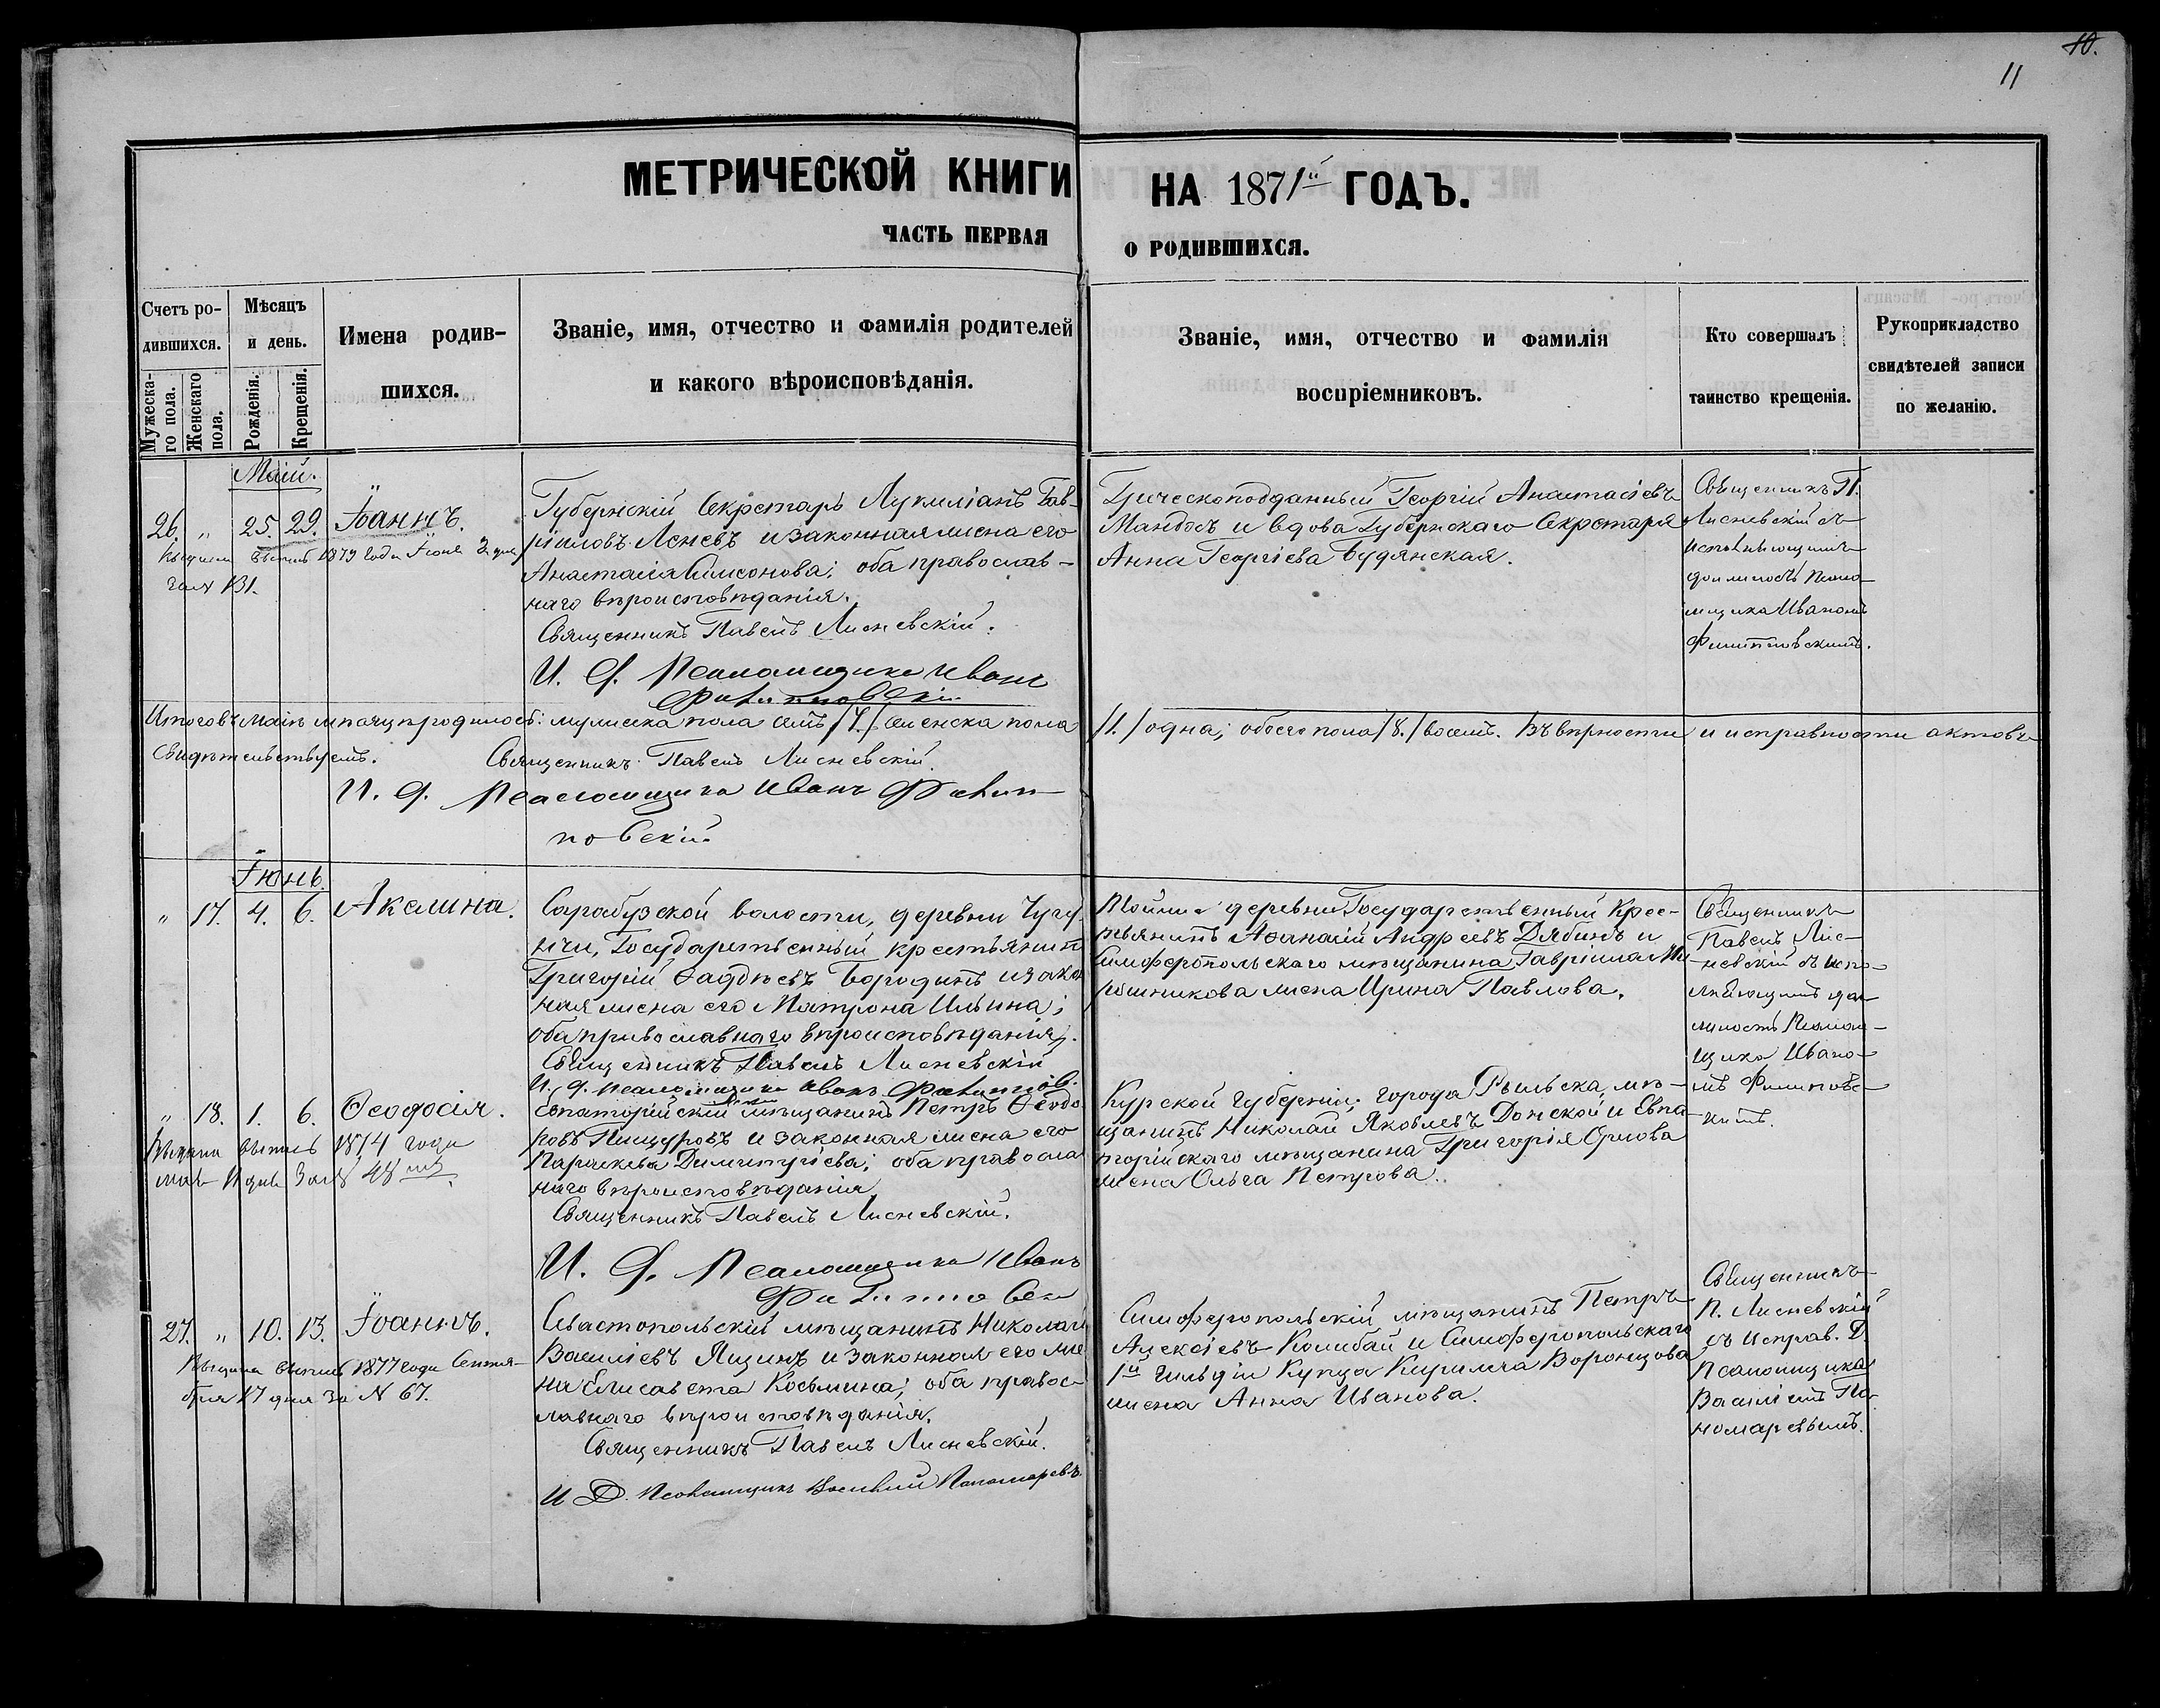 10.
11
МЕТРИЧЕСКОЙ КНИГИ НА 1871й ГОДЪ.
ЧАСТЬ ПЕРВАЯ О РОДИВШИХСЯ.
Счетъ ро-
дившихся.
Мужеска-
го пола.
Женскаго
пола.
Мѣсяцъ
и день.
Рожденія.
Крещенія.
Имена родив-
шихся.
Званіе, имя, отчество и фамилія родителей
и какого вѣроисповѣданія.
Званіе, имя, отчество и фамилія
воспріемниковъ.
Кто совершалъ
таинство крещенія.
Рукоприкладство
свидѣтелей записи
по желанію.
Маій.
26. " 25. 29. Іоаннъ.
1879 года Іюня
за № 131.
Губернскій Секретарь Лукиліанъ Гав-
ріиловъ Асневъ и законная жена его
Анастасія Симеонова; оба православ-
наго вѣроисповѣданія.
Священникъ Павелъ Лисневскій.
И. д. Псаломщика Иванъ
Филипповскій
Греческоподданный Георгій Анастасіевъ
Мандосъ и вдова Губернскаго Секретаря
Анна Георгіева Будянская.
Священникъ П.
Лисневскій съ
исполняющимъ
должность псало-
мщика Иваномъ
Филипповскимъ.
Итого въ маіѣ мѣсяцѣ родилось: мужеска пола семь /7./ женска пола /1./ одна; обоего пола /8./ восемь. Въ вѣрности и исправности актовъ
свидѣтельствуемъ. Священникъ Павелъ Лисневскій.
И. д. Псаломщика Иванъ Филип-
повскій
Іюнь.
" 17. 4. 6. Акелина.
Сарабузской волости, деревни
Государственный крестьянинъ
Григорій Фаддѣевъ Бородинъ и закон
ная жена его Матрона Ильина;
оба православнаго вѣроисповѣданія.
Священникъ Павелъ Лисневскій
И. д. псаломщика Иванъ Филиппов-
Тойже деревни Государственный Крес-
тьянинъ Аѳанасій Андреевъ Дябинъ и
Симферопольскаго мѣщанина Гавріила
жена Ирина Павлова.
Священникъ
Павелъ Лис-
невскій съ испо-
лняющимъ дол-
жность Псалом-
щика Ивано-
мъ Филиповс-
кимъ.
" 18. 1. 6. Ѳеодосія.
Выдана выпись 1874 года
мая 11 дня за № 48мъ
Евпаторійскій мѣщанинъ Петръ Ѳеодо
ровъ Пищуровъ и законная жена его
Параскева Димитріева; оба правосла
наго вѣроисповѣданія
Священникъ Павелъ Лисневскій.
И. д. Псаломщика Иванъ
Филиповск
Курской Губерніи, города Рыльска, мѣ-
щанинъ Николай Яковлевъ Донской и Евпа-
торійскаго мѣщанина Григорія Орлова
жена Ольга Петрова.
27. " 10. 13. Іоаннъ.
Выдана выпись 1877 года Сентя-
бря 17 дня за № 67.
Севастопольскій мѣщанинъ Николай
Василіевъ Яцинъ и законная его же-
на Елисавета Косьмина; оба правос-
лавнаго вѣроисповѣданія.
Священникъ Павелъ Лисневскій.
И Д. Псаломщикъ Василий Пономаревъ
Симферопольскій мѣщанинъ Петръ
Алексіевъ Колибай и Симферопольскаго
1й гильдіи Купца Кирилла Воронцова
жена Анна Иванова.
Священникъ
П. Лисневскій
съ исправ. д.
псаломщика
Василіемъ По-
номаревымъ.